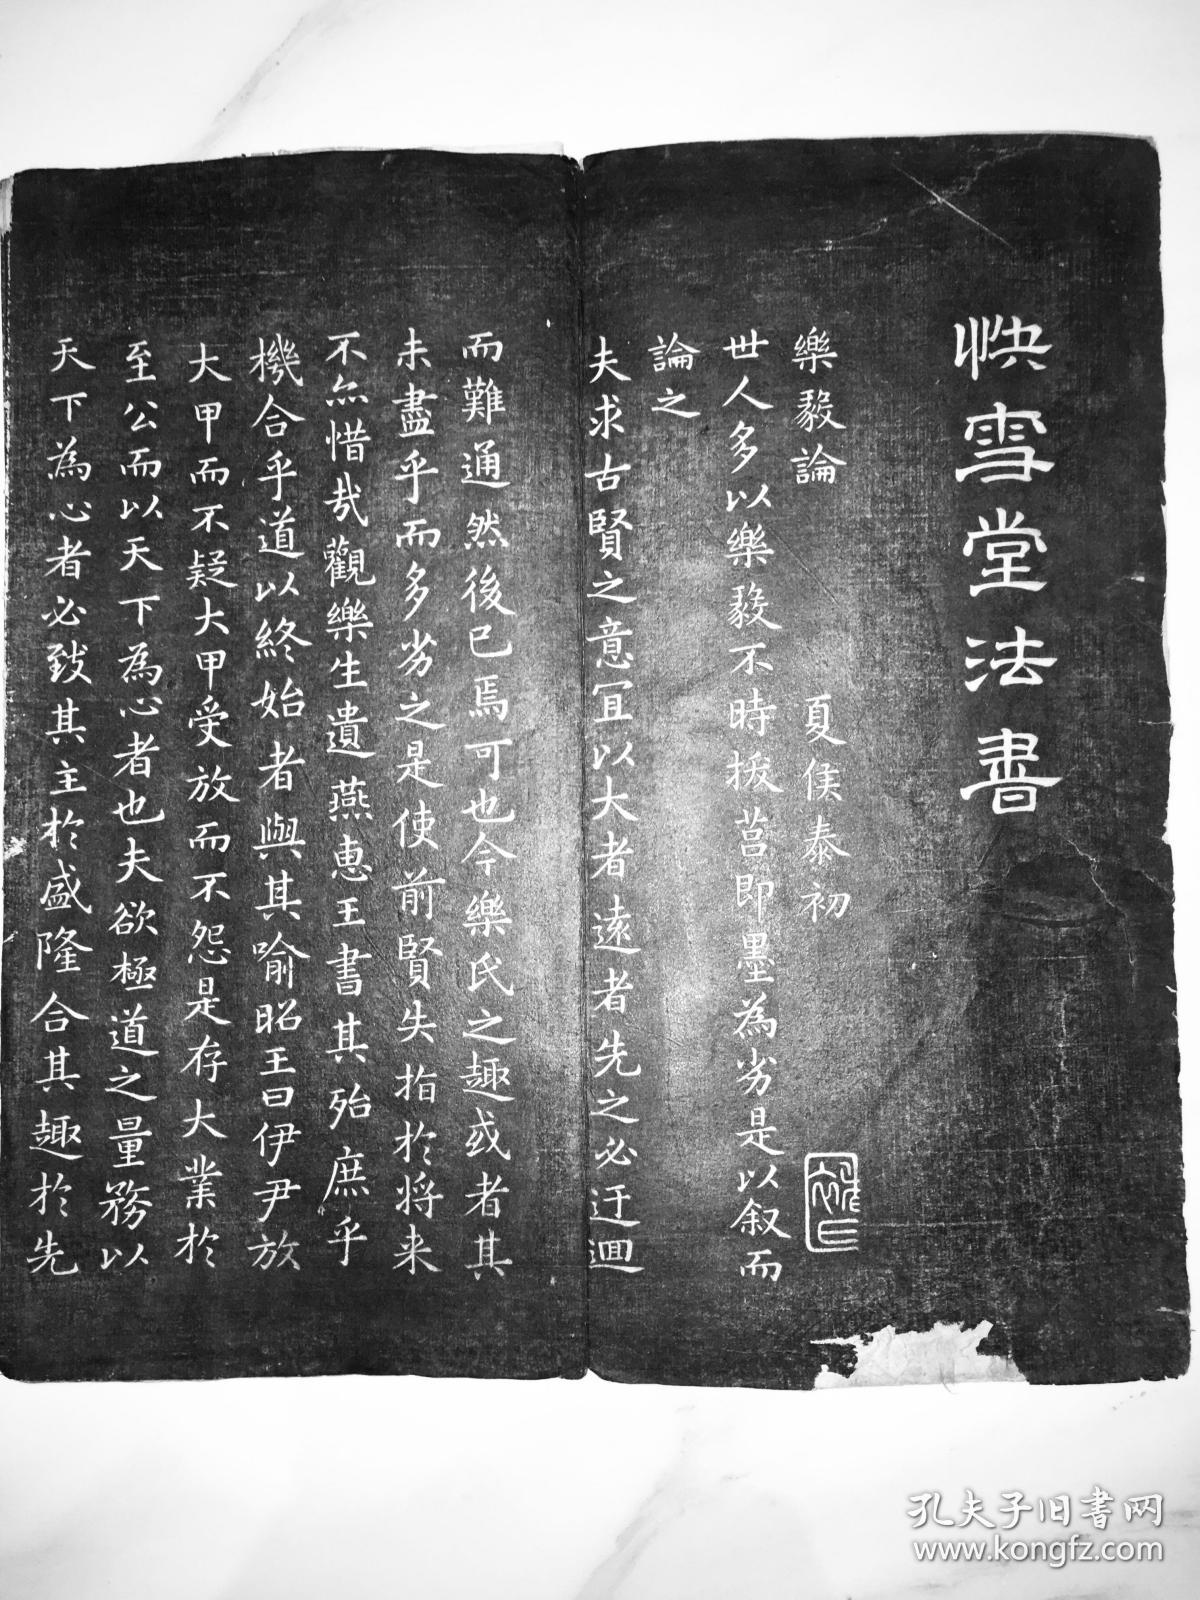 快雪堂法書
樂毅論 夏侯泰初
世人多以樂毅不時拔莒即墨為劣是以叙而
論之
夫求古賢之意宜以大者遠者先之必迂迴
而難通然後已焉可也今樂氏之趣或者其
未盡乎而多劣之是使前賢失指於將来
不亦惜哉觀樂生遺燕惠王書其殆庶乎
機合乎道以終始者與其喻昭王曰伊尹放
大甲而不疑大甲受放而不怨是存大業於
至公而以天下為心者也夫欲極道之量務以
天下為心者必致其主於盛隆合其趣於先
孔夫子旧書网
www.kongfz.com